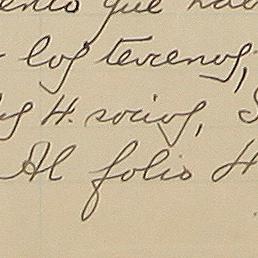 que
los terrenos,
4. socios,
Al folio 4